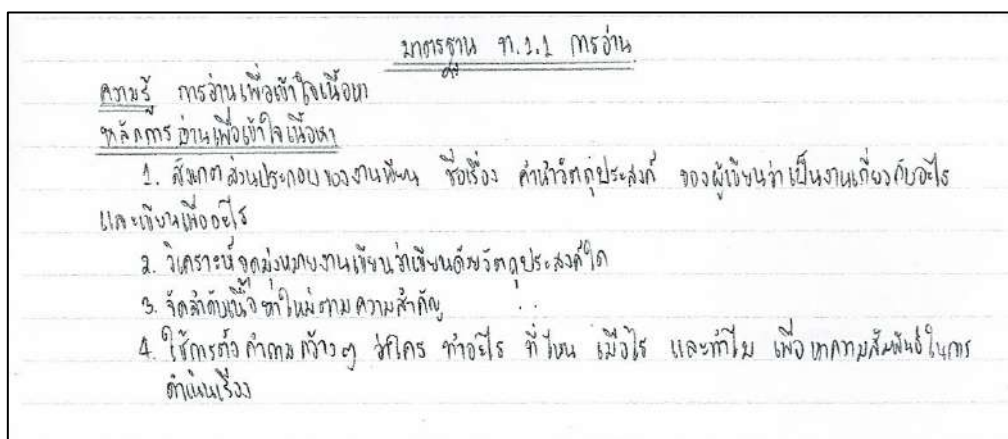 มาตรฐาน ท.1.1 การอ่าน
ความรู้ การอ่านเพื่อเข้าใจเนื้อหา
หลักการอ่านเพื่อเข้าใจเนื้อหา
1. สังเกตส่วนประกอบของงานเขียน ชื่อเรื่อง คำนำวัตถุประสงค์ ของผู้เขียนว่าเป็นงานเกี่ยวกับอะไร
และเขียนเพื่ออะไร
2. วิเคราะห์จุดมุ่งหมายงานเขียนว่าเขียนด้วยวัตถุประสงค์ใด
3. จัดลำดับเนื้อหาใหม่ตามความสำคัญ
4. ใช้การตั้งคำถามกว้างๆ ว่าใคร ทำอะไร ที่ไหน เมื่อไร และทำไม เพื่อหาความสัมพันธ์ในการ
ดำเนินเรื่อง